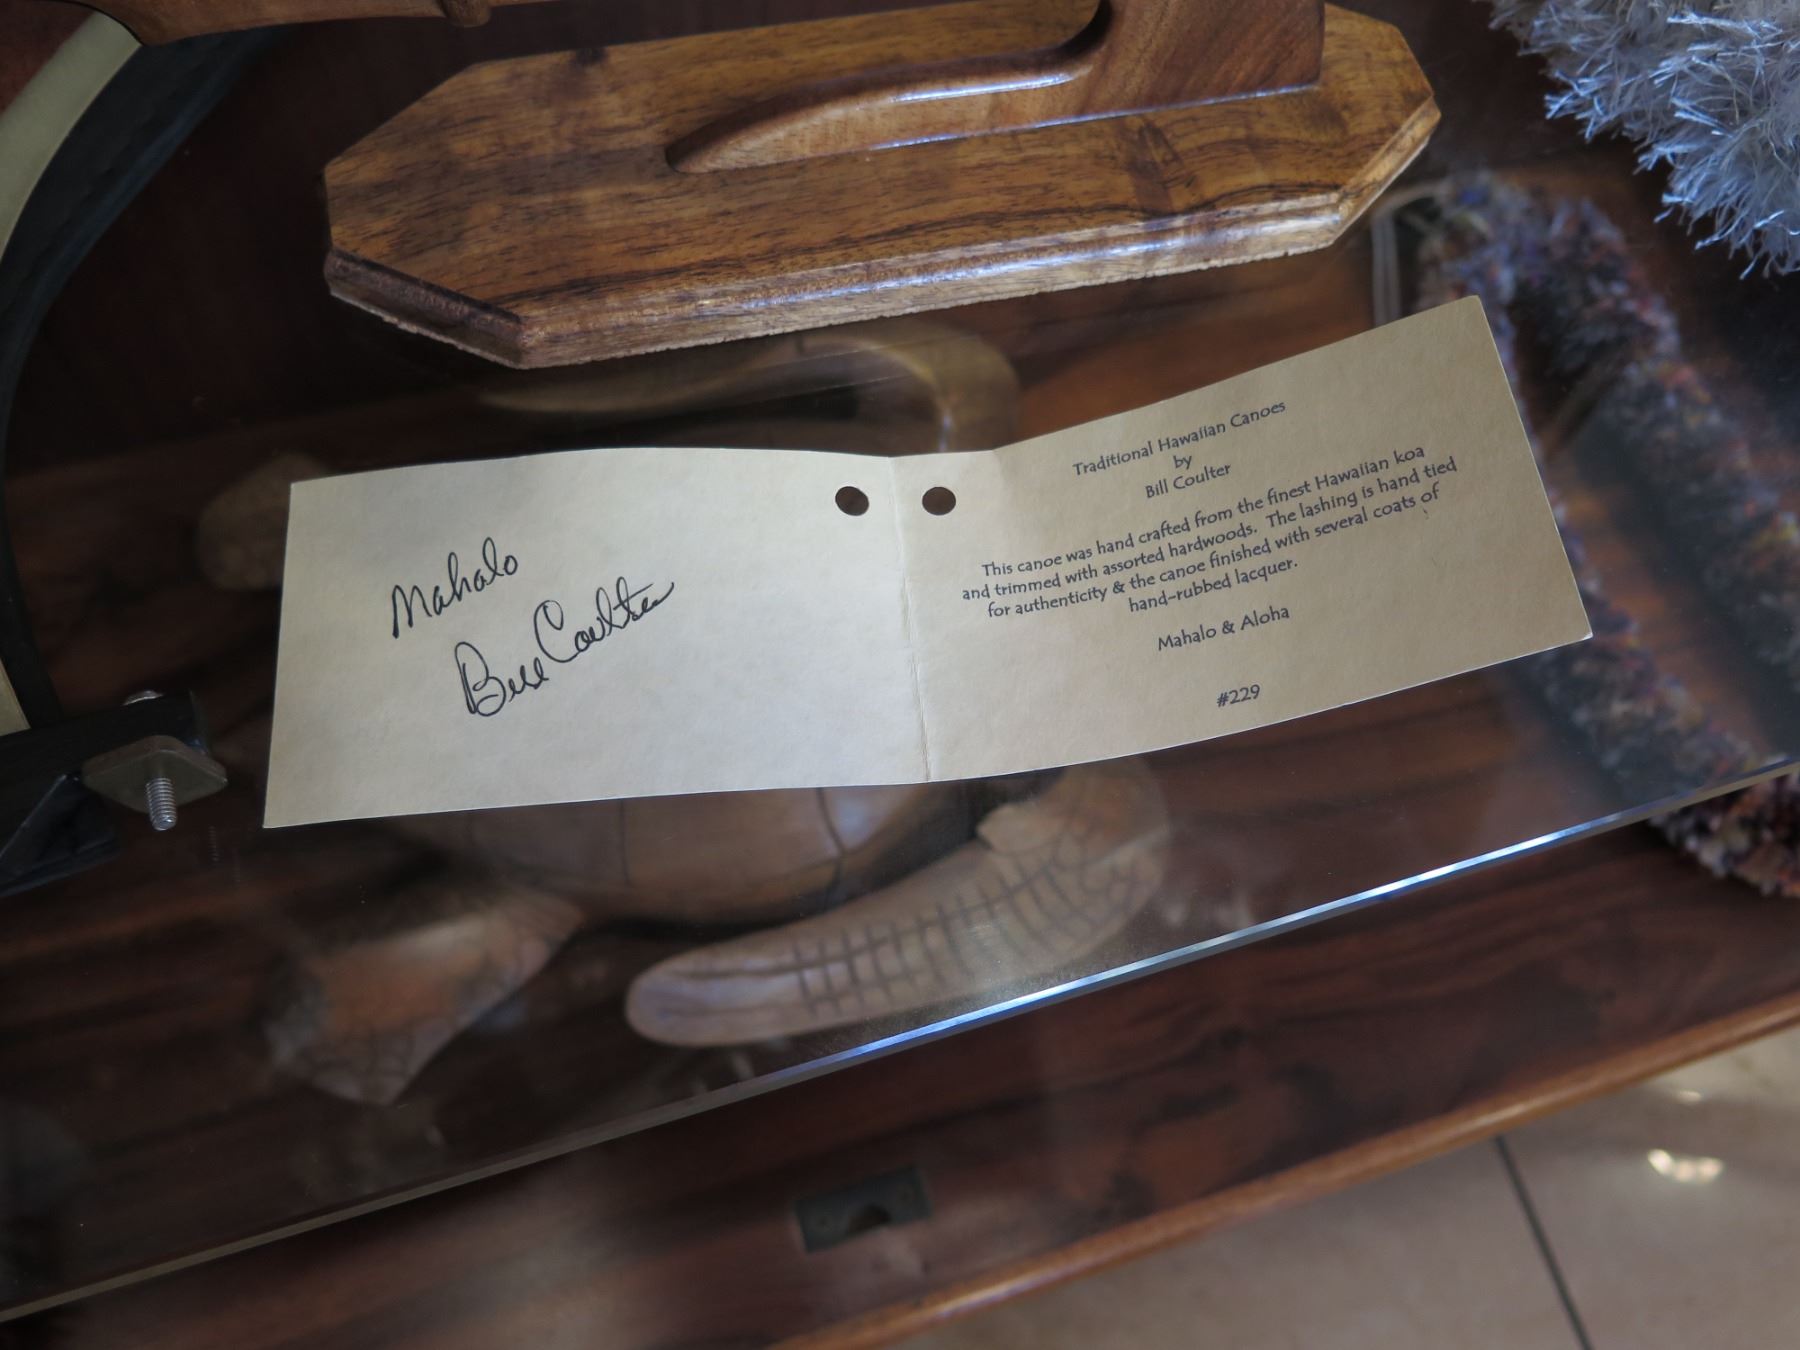 Mahalo
Bill Coulter
Traditional Hawaiian Canoes
by
Bill Coulter
This canoe was hand crafted from the finest Hawaiian koa
and trimmed with assorted hardwoods. The lashing is hand tied
for authenticity & the canoe finished with several coats of
hand-rubbed lacquer.
Mahalo & Aloha
#229